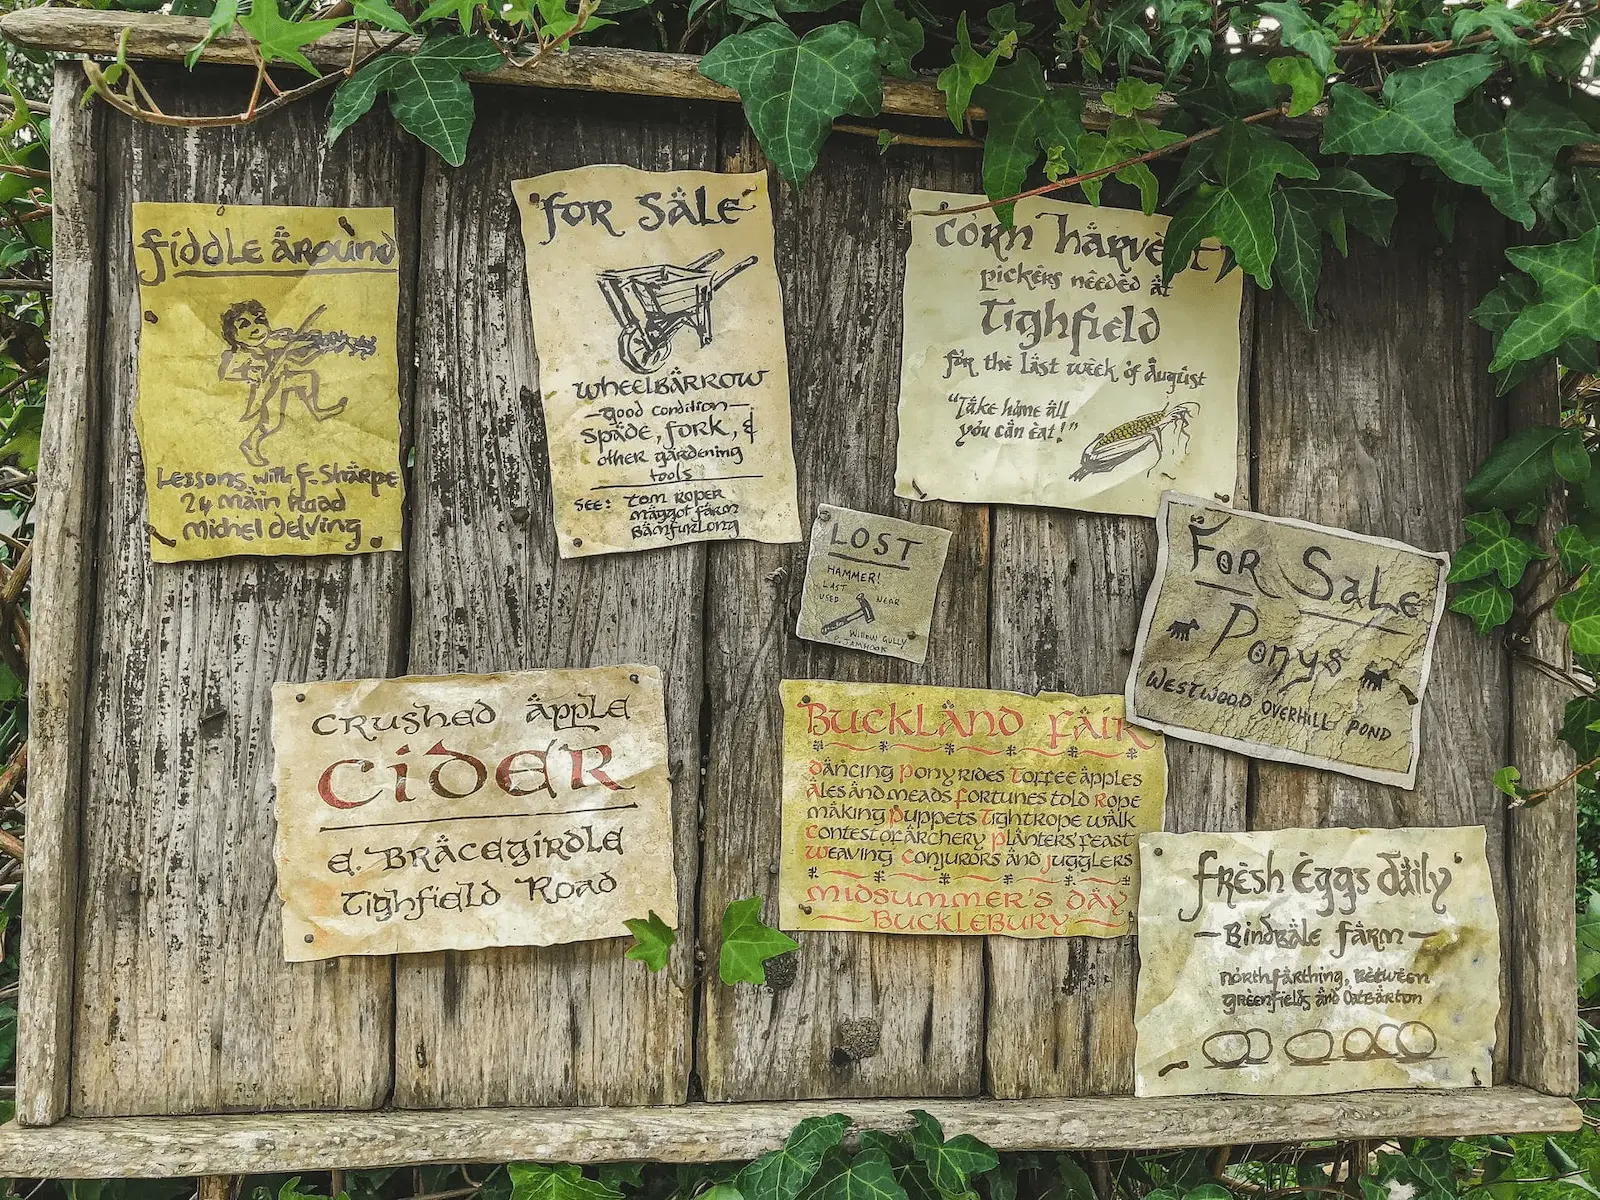 fiddle around
Lessons with F. Sharpe
24 Main Road
Michel delving
for sale
wheelbarrow
good condition
spade, fork, &
other gardening
tools
see: Tom Roper
Maggot farm
Bamfurlong
corn harvest
pickers needed at
Tighfield
for the last week of August
"Take home all
you can eat!"
LOST
HAMMER!
LAST
USED NEAR
WILLOW GULLY
For Sale
Ponys
WESTWOOD OVERHILL POND
crushed apple
cider
e. Bracegirdle
Tighfield Road
Buckland fair
dancing Pony rides Toffee apples
Ales and meads fortunes told Rope
making Puppets Tightrope walk
Contest of archery Planters' feast
Weaving Conjurors and jugglers
midsummer's day
Bucklebury
fresh eggs daily
Bindbale farm
northfarthing, between
greenfields and Oatbarton